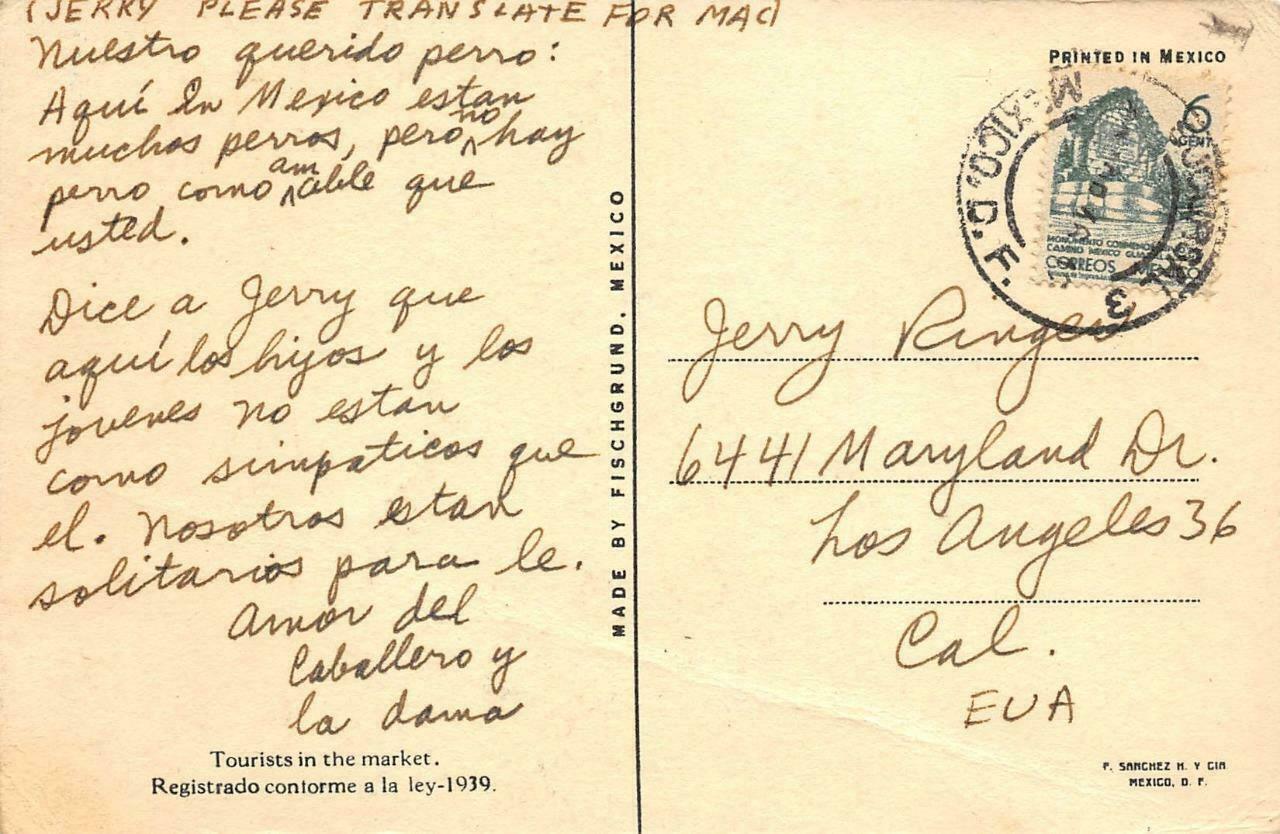 (JERRY PLEASE TRANSLATE FOR MAC)
Nuestro querido perro:
Aquí en Mexico estan
muchos perros, pero no hay
perro como amable que
usted.
Dice a Jerry que
aquí los hijos y los
jovenes no estan
como simpaticos que
el. Nosotros estan
solitarios para le.
Amor del
Caballero y
la dama
Tourists in the market.
Registrado conforme a la ley-1939.
MADE BY FISCHGRUND, MEXICO
PRINTED IN MEXICO
MEXICO, D. F.
6
CENT
MONUMENTO
CAMINO MEXICO
CORREOS MEXICO
3
Jerry Ringer
6441 Maryland Dr.
Los Angeles 36
Cal.
EUA
F. SANCHEZ H. Y CIA
MEXICO, D. F.